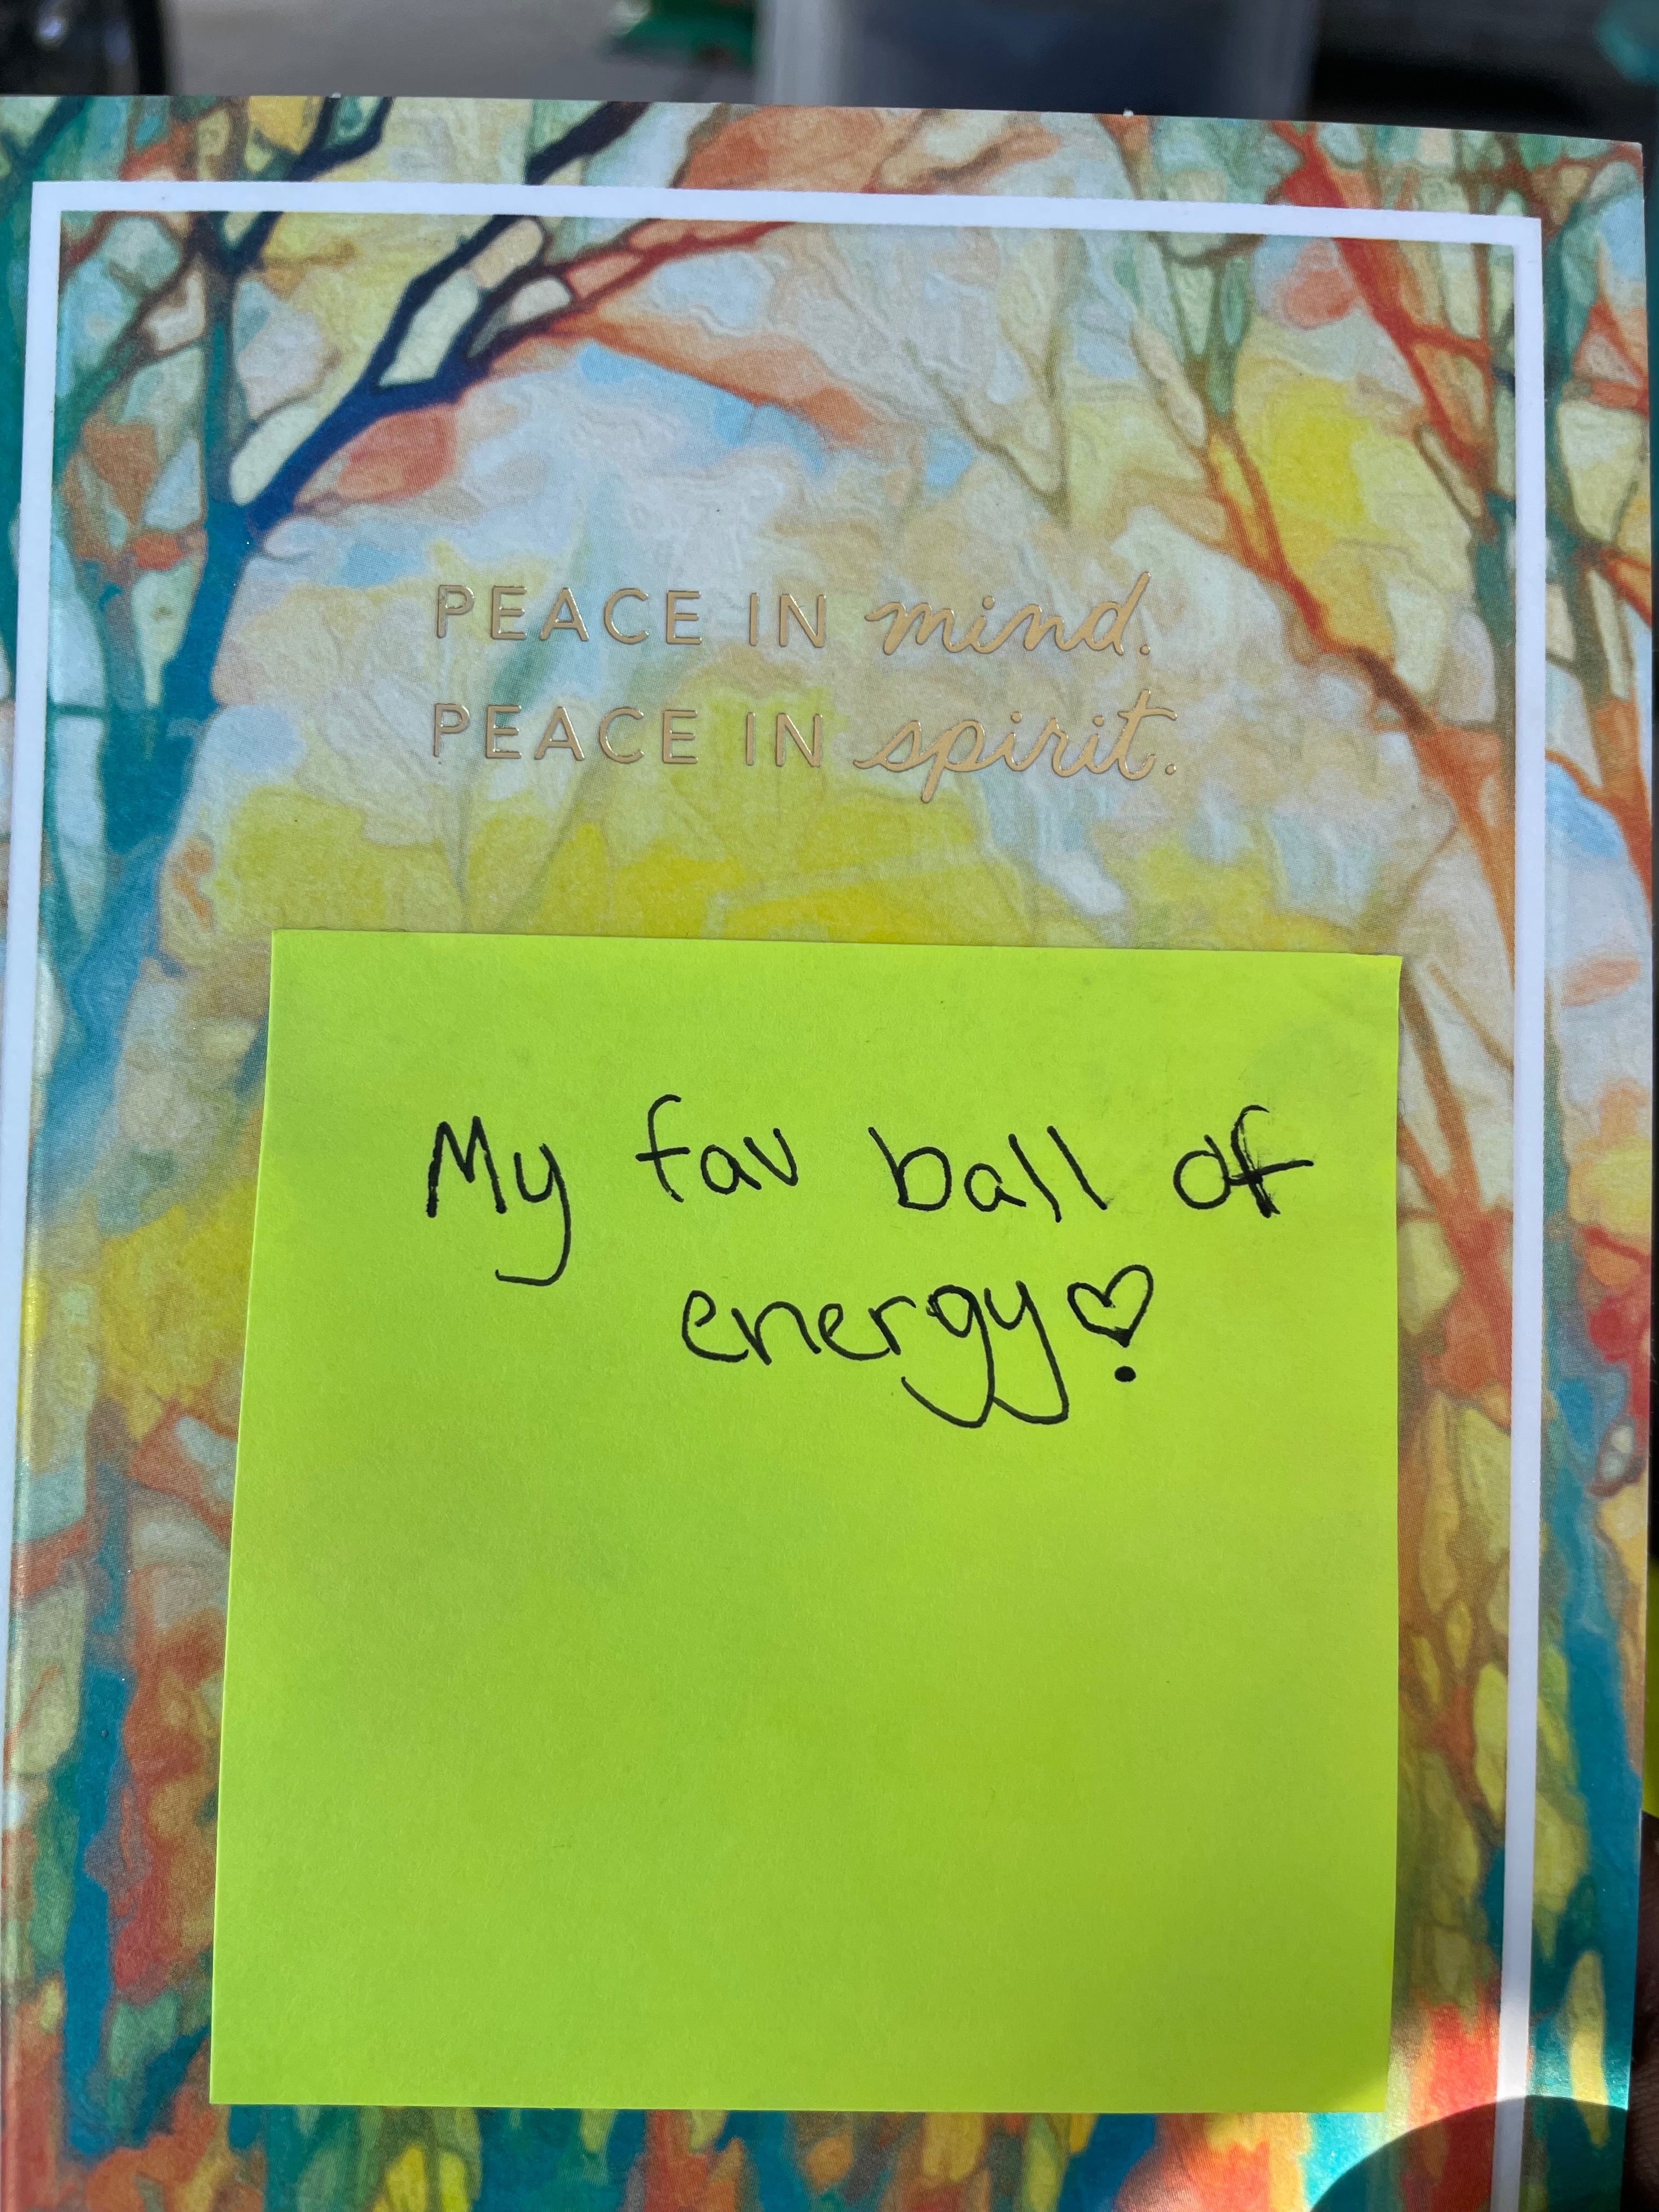 PEACE IN mind.
PEACE IN spirit.
My fav ball of
energy♡.